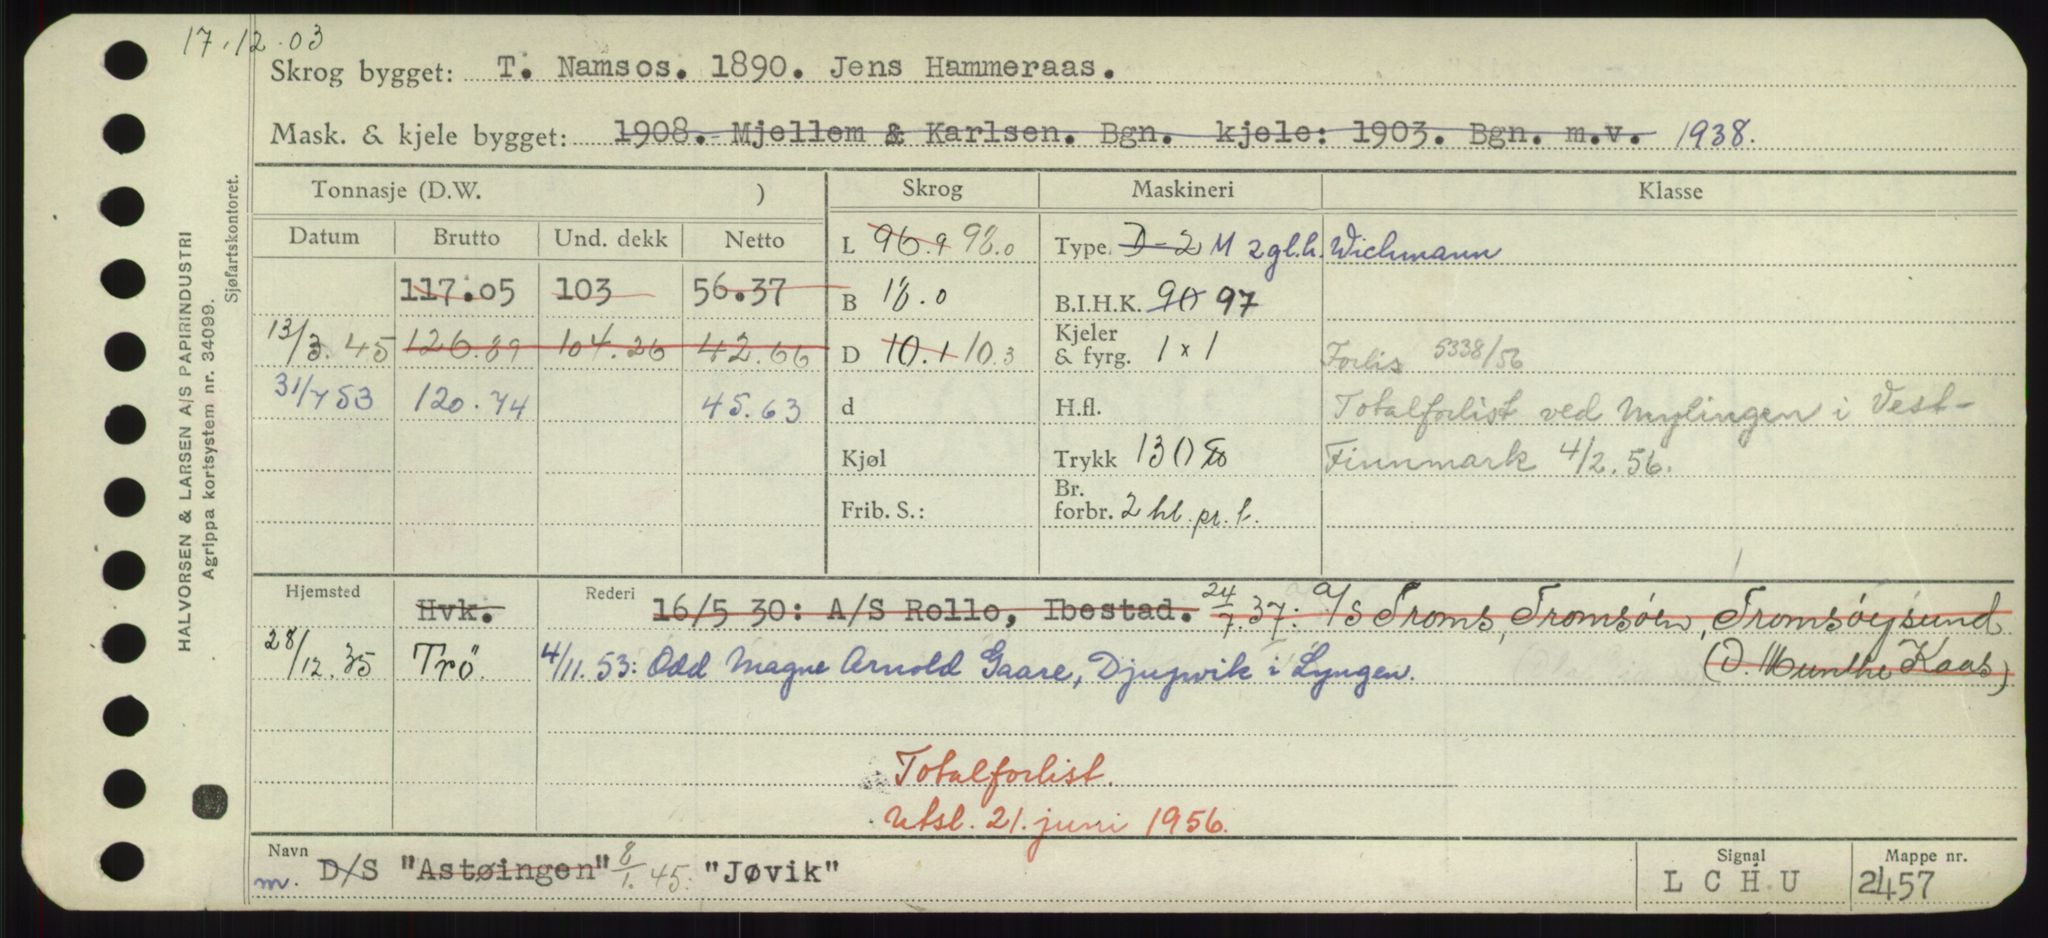 17.12.03
Skrog bygget: T. Namsos. 1890. Jens Hammeraas.
Mask. & kjele bygget: 1908. Mjellem & Karlsen. Bgn. kjele: 1903. Bgn. m.v. 1938.
Tonnasje (D.W. ) Skrog Maskineri Klasse
Datum Brutto Und. dekk Netto L 96.9 98.0 Type. D-2 M 2 gl.h. Wichmann
117.05 103 56.37 B 18.0 B.I.H.K. 90 97
13/3.45 126.89 104.26 42.66 D 10.1 10.3 Kjeler & fyrg. 1 x 1 Forlis 5338/56
31/7 53 120.74 45.63 d H.fl. Totalforlist ved Mylingen i Vest-
Kjøl Trykk 130 Finnmark 4/2.56.
Frib. S.: Br. forbr. 2 hl. pr. t.
Hjemsted Hvk. Rederi 16/5 30: A/S Rollo, Ibestad. 24/7.37: A/S Troms, Tromsöen, Tromsöysund
28/12.35 Trö. 4/11.53: Odd Magne Arnold Gaare, Djupvik i Lyngen. (D. Munthe Kaas)
Totalforlist.
Utsl. 21. juni 1956.
Navn m. D/S "Astøingen" 8/1.45: "Jøvik" Signal L C H U Mappe nr. 2457
HALVORSEN & LARSEN A/S PAPIRINDUSTRI
Agrippa kortsystem nr. 34099.
Sjøfartskontoret.